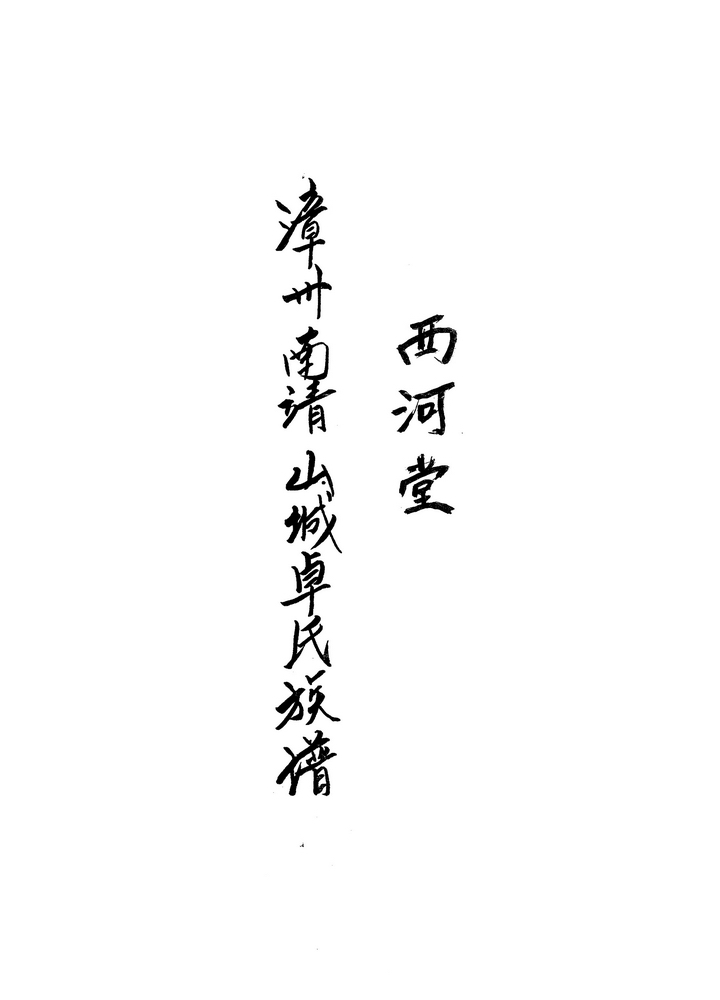 西河堂
漳州南靖山城卓氏族谱